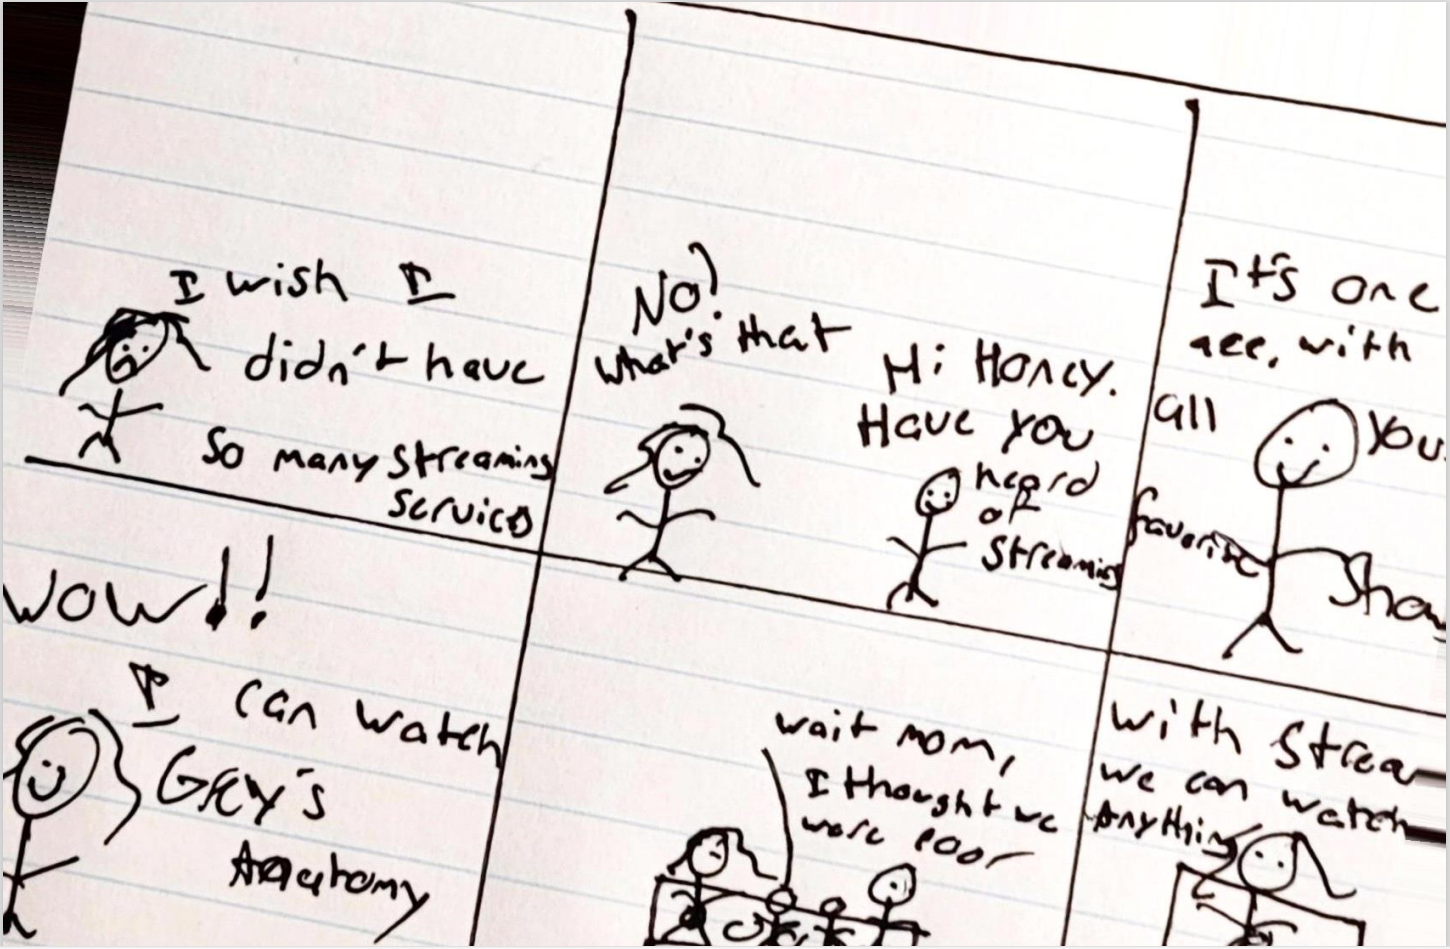 I wish I
didn't have
so many streaming
service
No!
what's that
Hi Honey.
Have you
heard
of
Streaming
It's one
with
all
You
favorite
Show
WOW!!
I can watch
Grey's
Anatomy
wait mom,
I thought we
were poor
with Strea
we can watch
Anything